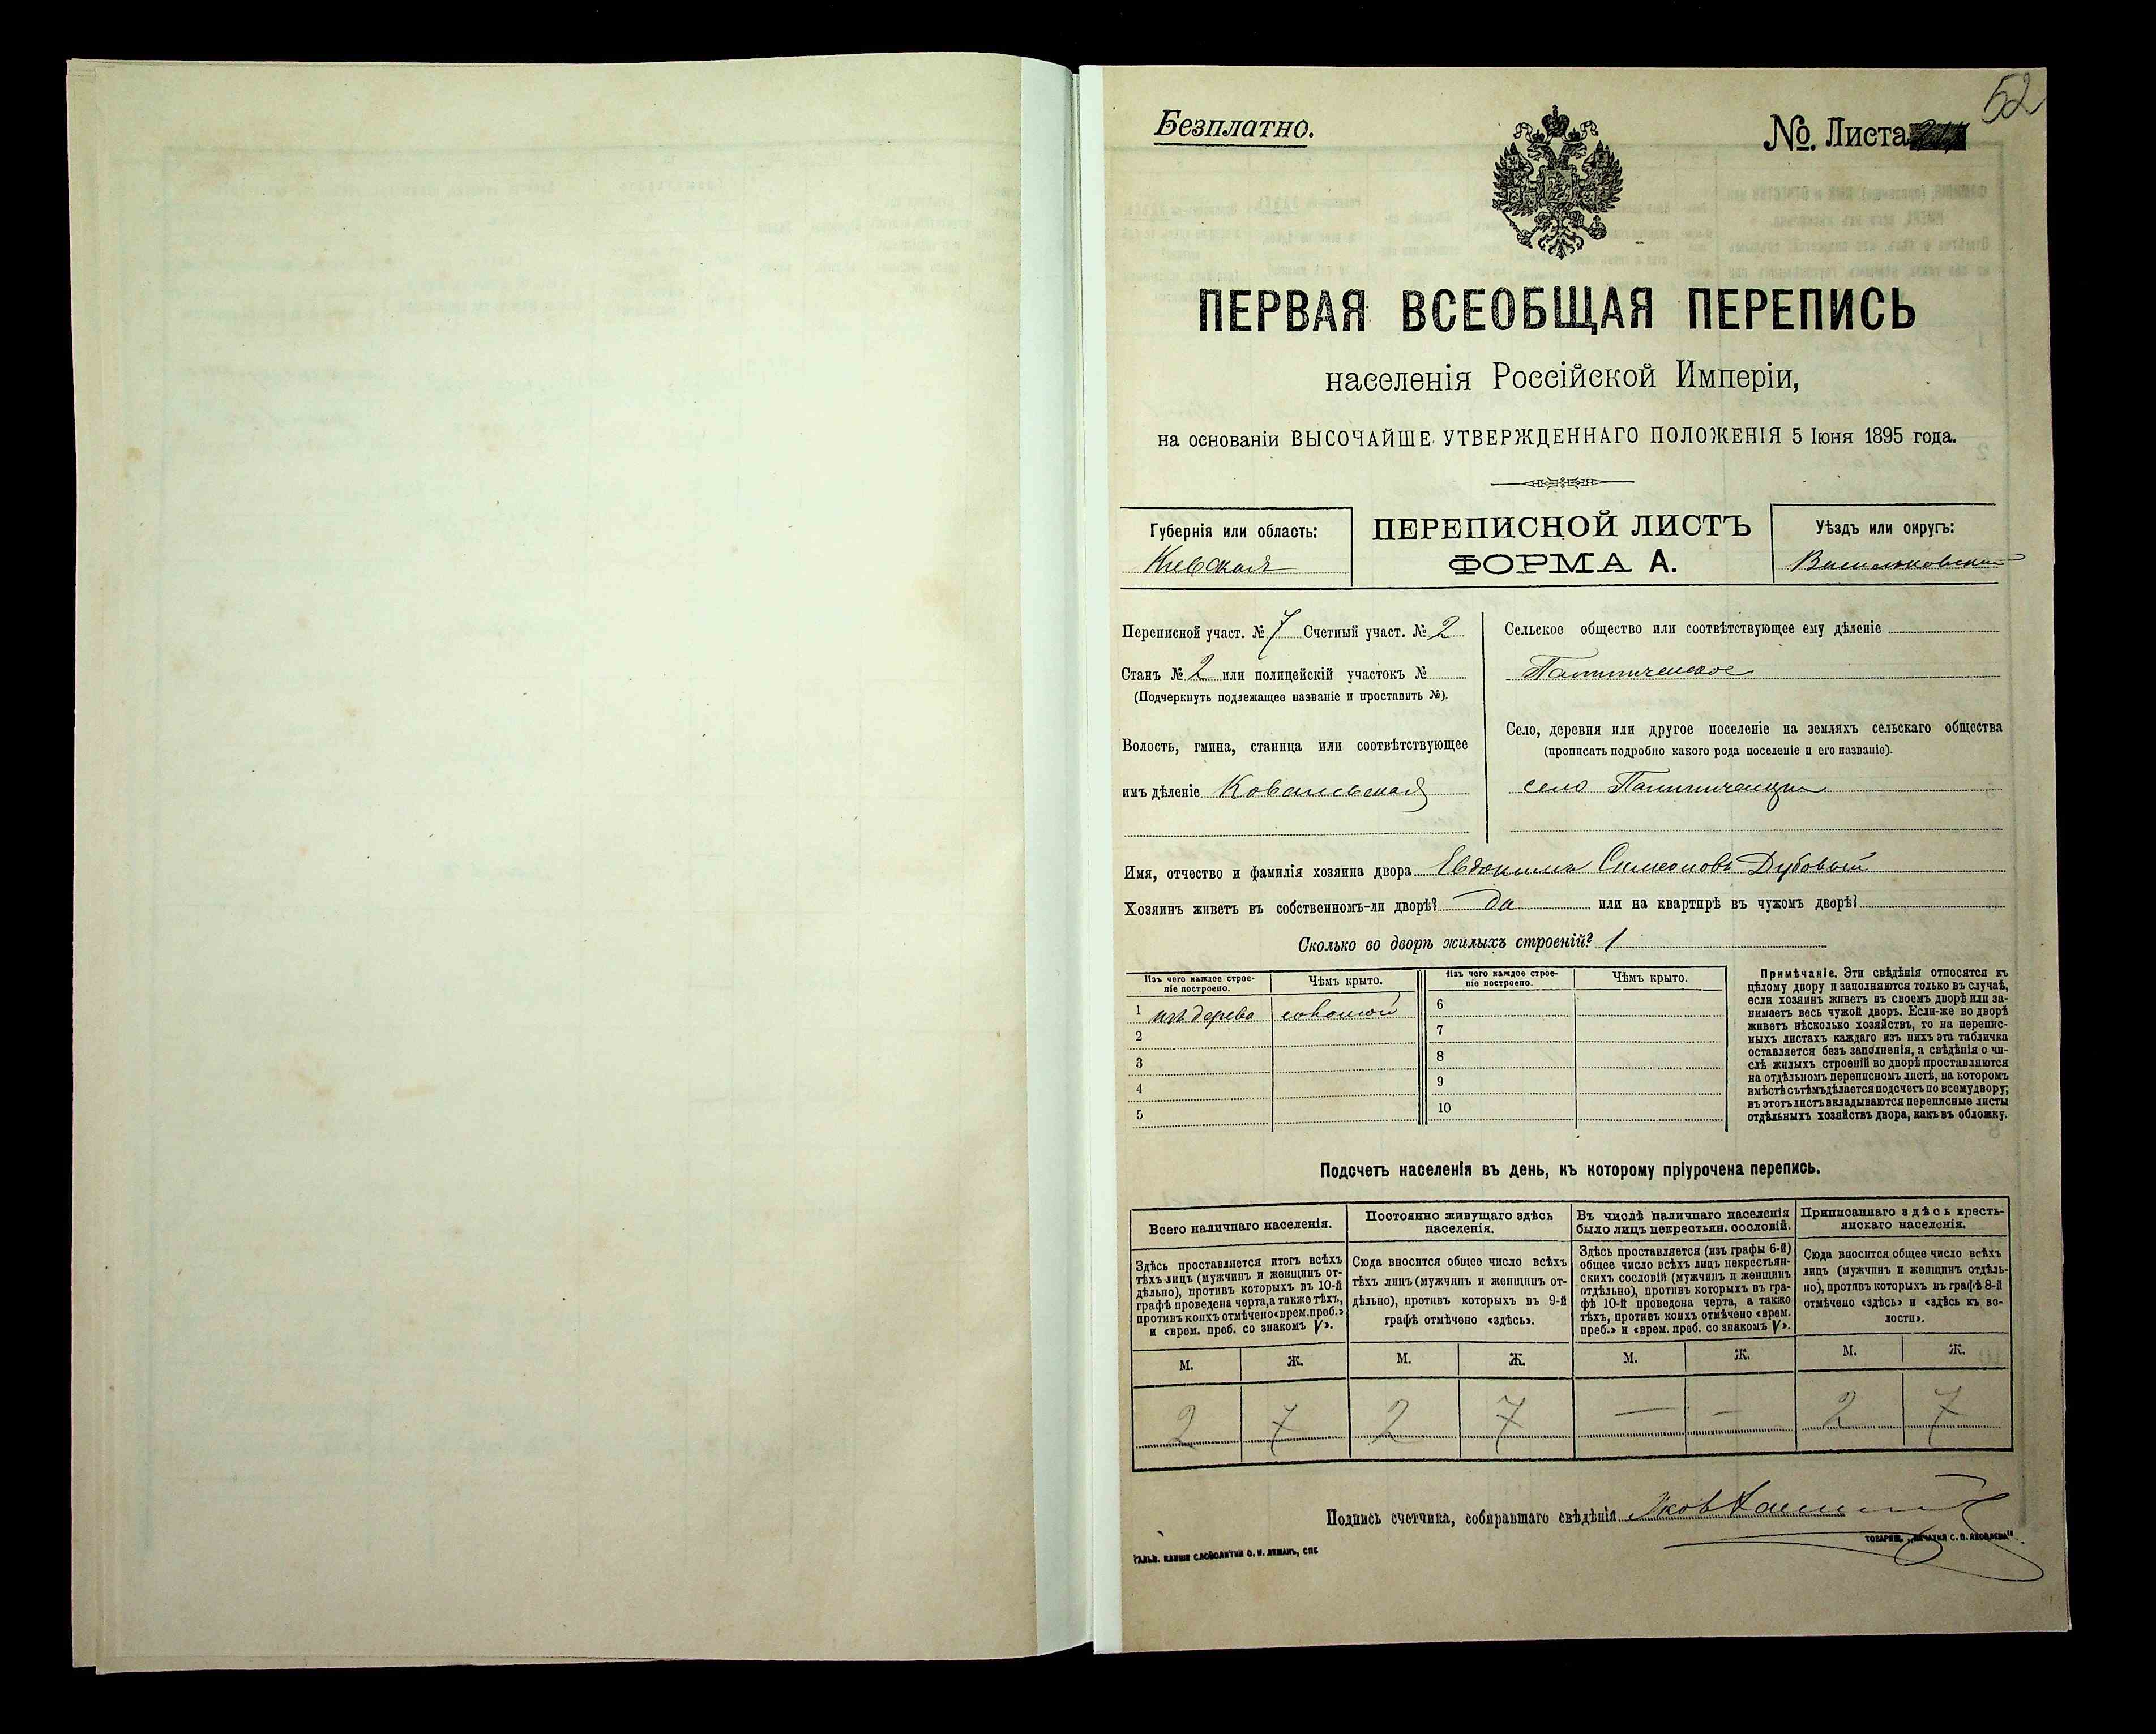 52
Безплатно.
№. Листа
ПЕРВАЯ ВСЕОБЩАЯ ПЕРЕПИСЬ
населенія Россійской Имперіи,
на основаніи ВЫСОЧАЙШЕ УТВЕРЖДЕННАГО ПОЛОЖЕНІЯ 5 Іюня 1895 года.
Губернія или область:
Кіевская
ПЕРЕПИСНОЙ ЛИСТЪ
ФОРМА А.
Уѣздъ или округъ:
Васильковский
Переписной участ. № 7 Счетный участ. № 2
Станъ № 2 или полицейскій участокъ №
(Подчеркнуть подлежащее названіе и проставить №).
Волость, гмина, станица или соотвѣтствующее
имъ дѣленіе Ковалевская
Сельское общество или соотвѣтствующее ему дѣленіе
Палиниченское
Село, деревня или другое поселеніе на земляхъ сельскаго общества
(прописать подробно какого рода поселеніе и его названіе).
село Палиниченцы
Имя, отчество и фамилія хозяина двора Евдокимъ Симеоновъ Дубовый
Хозяинъ живетъ въ собственномъ-ли дворѣ? да или на квартирѣ въ чужомъ дворѣ?
Сколько во дворѣ жилыхъ строеній? 1
Изъ чего каждое строе-
ніе построено.
Чѣмъ крыто.
Изъ чего каждое строе-
ніе построено.
Чѣмъ крыто.
1 изъ дерева соломой 6
2 7
3 8
4 9
5 10
Примѣчаніе. Эти свѣдѣнія относятся къ
цѣлому двору и заполняются только въ случаѣ,
если хозяинъ живетъ въ своемъ дворѣ или за-
нимаетъ весь чужой дворъ. Если-же во дворѣ
живетъ нѣсколько хозяйствъ, то на перепис-
ныхъ листахъ каждаго изъ нихъ эта табличка
оставляется безъ заполненія, а свѣдѣнія о чи-
слѣ жилыхъ строеній во дворѣ проставляются
на отдѣльномъ переписномъ листѣ, на которомъ
вмѣстѣ съ тѣмъ дѣлается подсчетъ по всему двору;
въ этотъ листъ вкладываются переписные листы
отдѣльныхъ хозяйствъ двора, какъ въ обложку.
Подсчетъ населенія въ день, къ которому пріурочена перепись.
Всего наличнаго населенія.
Здѣсь проставляется итогъ всѣхъ
тѣхъ лицъ (мужчинъ и женщинъ от-
дѣльно), противъ которыхъ въ 10-й
графѣ проведена черта, а также тѣхъ,
противъ коихъ отмѣчено «врем. преб.»
и «врем. преб. со знакомъ V».
Постоянно живущаго здѣсь
населенія.
Сюда вносится общее число всѣхъ
тѣхъ лицъ (мужчинъ и женщинъ от-
дѣльно), противъ которыхъ въ 9-й
графѣ отмѣчено «здѣсь».
Въ числѣ наличнаго населенія
было лицъ некрестьян. сословій.
Здѣсь проставляется (изъ графы 6-й)
общее число всѣхъ лицъ некрестьян-
скихъ сословій (мужчинъ и женщинъ
отдѣльно), противъ которыхъ въ гра-
фѣ 10-й проведена черта, а также
тѣхъ, противъ коихъ отмѣчено «врем.
преб.» и «врем. преб. со знакомъ V».
Приписаннаго здѣсь кресть-
янскаго населенія.
Сюда вносится общее число всѣхъ
лицъ (мужчинъ и женщинъ отдѣль-
но), противъ которыхъ въ графѣ 8-й
отмѣчено «здѣсь» и «здѣсь къ во-
лости».
М. Ж. М. Ж. М. Ж. М. Ж.
2 7 2 7 — — 2 7
Подпись счетчика, собиравшаго свѣдѣнія Яков
ТОВАРИЩ. „ПЕЧАТНЯ С. П. ЯКОВЛЕВА“.
ГАЛЬВ. КЛИШЕ СЛОВОЛИТНИ О. И. ЛЕМАНЪ, СПБ